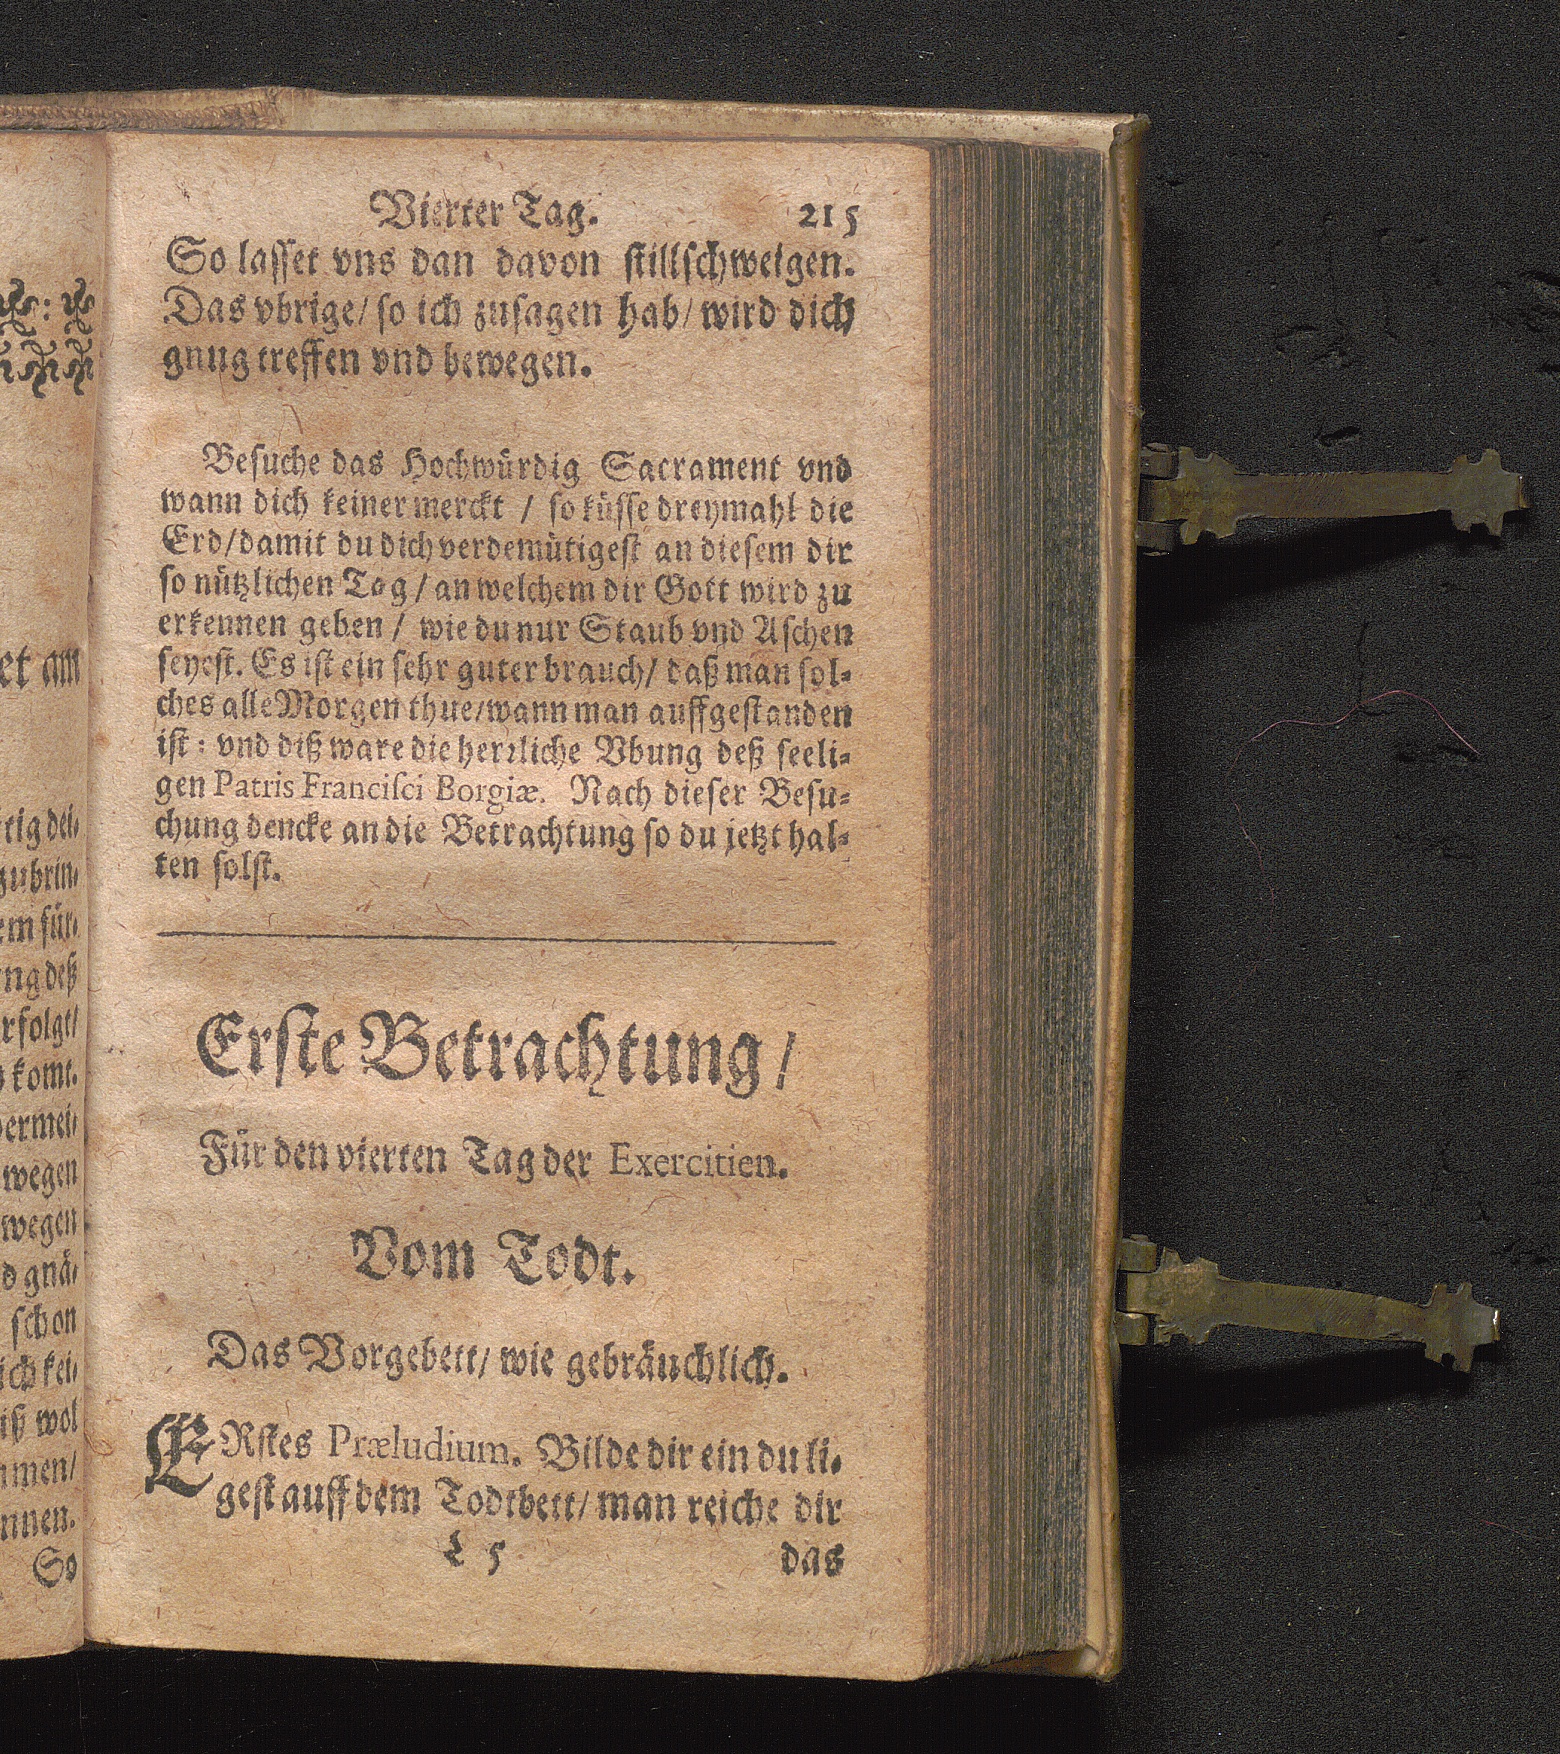 Vierter Tag. 215
So lasset vns dan davon stillschweigen.
Das vbrige/ so ich zusagen hab/ wird dich
gnug treffen vnd bewegen.
Besuche das Hochwürdig Sacrament vnd
wann dich keiner merckt / so küsse dreymahl die
Erd/damit du dich verdemütigest an diesem dir
so nützlichen Tag / an welchem dir Gott wird zu
erkennen geben / wie du nur Staub vnd Aschen
seyest. Es ist ein sehr guter brauch/ daß man sol-
ches alle Morgen thue/wann man auffgestanden
ist: vnd diß ware die herrliche Vbung deß seeli-
gen Patris Francisci Borgiæ. Nach dieser Besu-
chung dencke an die Betrachtung so du jetzt hal-
ten solst.
Erste Betrachtung/
Für den vierten Tag der Exercitien.
Vom Todt.
Das Vorgebett/ wie gebräuchlich.
ERstes Præludium. Bilde dir ein du li-
gest auff dem Todtbett/ man reiche dir
das
et am
tig dei-
zubrin-
em für-
ng deß
rfolgt/
komt.
vermei-
wegen
wegen
d gnä-
schon
ich kei-
iß wol
men/
nnen.
So